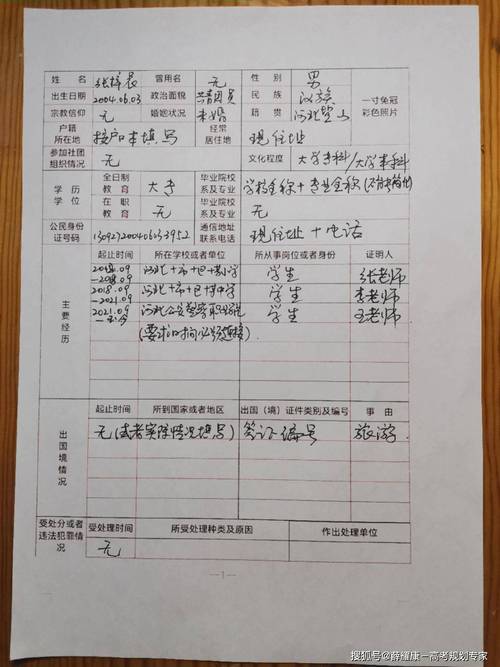 姓 名 张梓晨 曾用名 无 性 别 男
出生日期 2004.06.03 政治面貌 共青团员 民 族 汉族 一寸免冠
彩色照片
宗教信仰 无 婚姻状况 未婚 籍 贯 河北
户籍
所在地 按户口本填写 经常
居住地 现住址
参加社团
组织情况 无 文化程度 大学专科/大学本科
学 历
学 位 全日制
教育 大专 毕业院校
系及专业 学校全称+专业全称
在 职
教育 无 毕业院校
系及专业 无
公民身份
证号码 通信地址
联系电话 现住址+电话
主要经历
起止时间 所在学校或者单位 所从事岗位或者身份 证明人
-2018.09 河北 市 小学 学生 张老师
2018.09
-2021.09 河北 市 中学 学生 李老师
2021.09
-至今 河北公安警察职业学院 学生 王老师
(要求时间必须连接)
出国境情况
起止时间 所到国家或者地区 出国(境)证件类别及编号 事 由
无(或者实际情况填写) 签证 编号 旅游
受处分或者
违法犯罪情
况
受处理时间 所受处理种类及原因 作出处理单位
无
—1—
搜狐号@薛耀康—高考规划专家